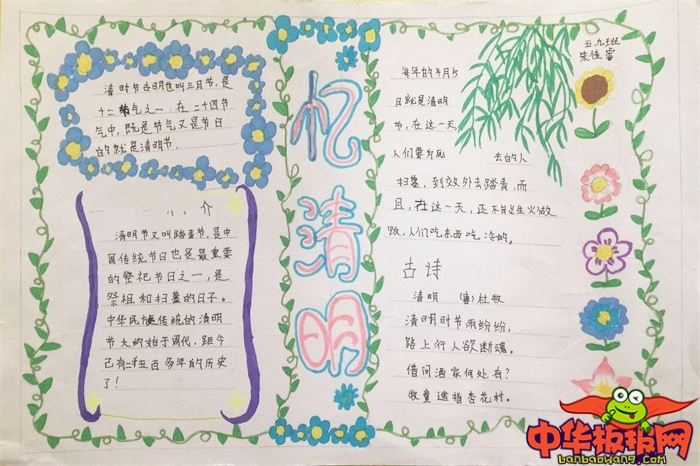 清时节古明也叫三月节,是
十二节气之一,在二十四节
气中,既是节气又是节日
的就是清明节。
介
清明节又叫踏青节,是中
国传统节日也是最重要
的祭祀节日之一,是
祭祖和扫墓的日子。
中华民族传统的清明
节大约始于周代,距今
已有二千五百多年的历史
了!
忆清明
五九班
朱佳睿
每年的4月5
日就是清明
节,在这一天,
人们要为死去的人
扫墓,到效外去踏青,而
且,在这一天,还不能生火做
饭,人们吃东西吃冷的。
古诗
清明 (唐)杜牧
清明时节雨纷纷,
路上行人欲断魂。
借问酒家何处有?
牧童遥指杏花村。
中华板报网
banbaowang.com